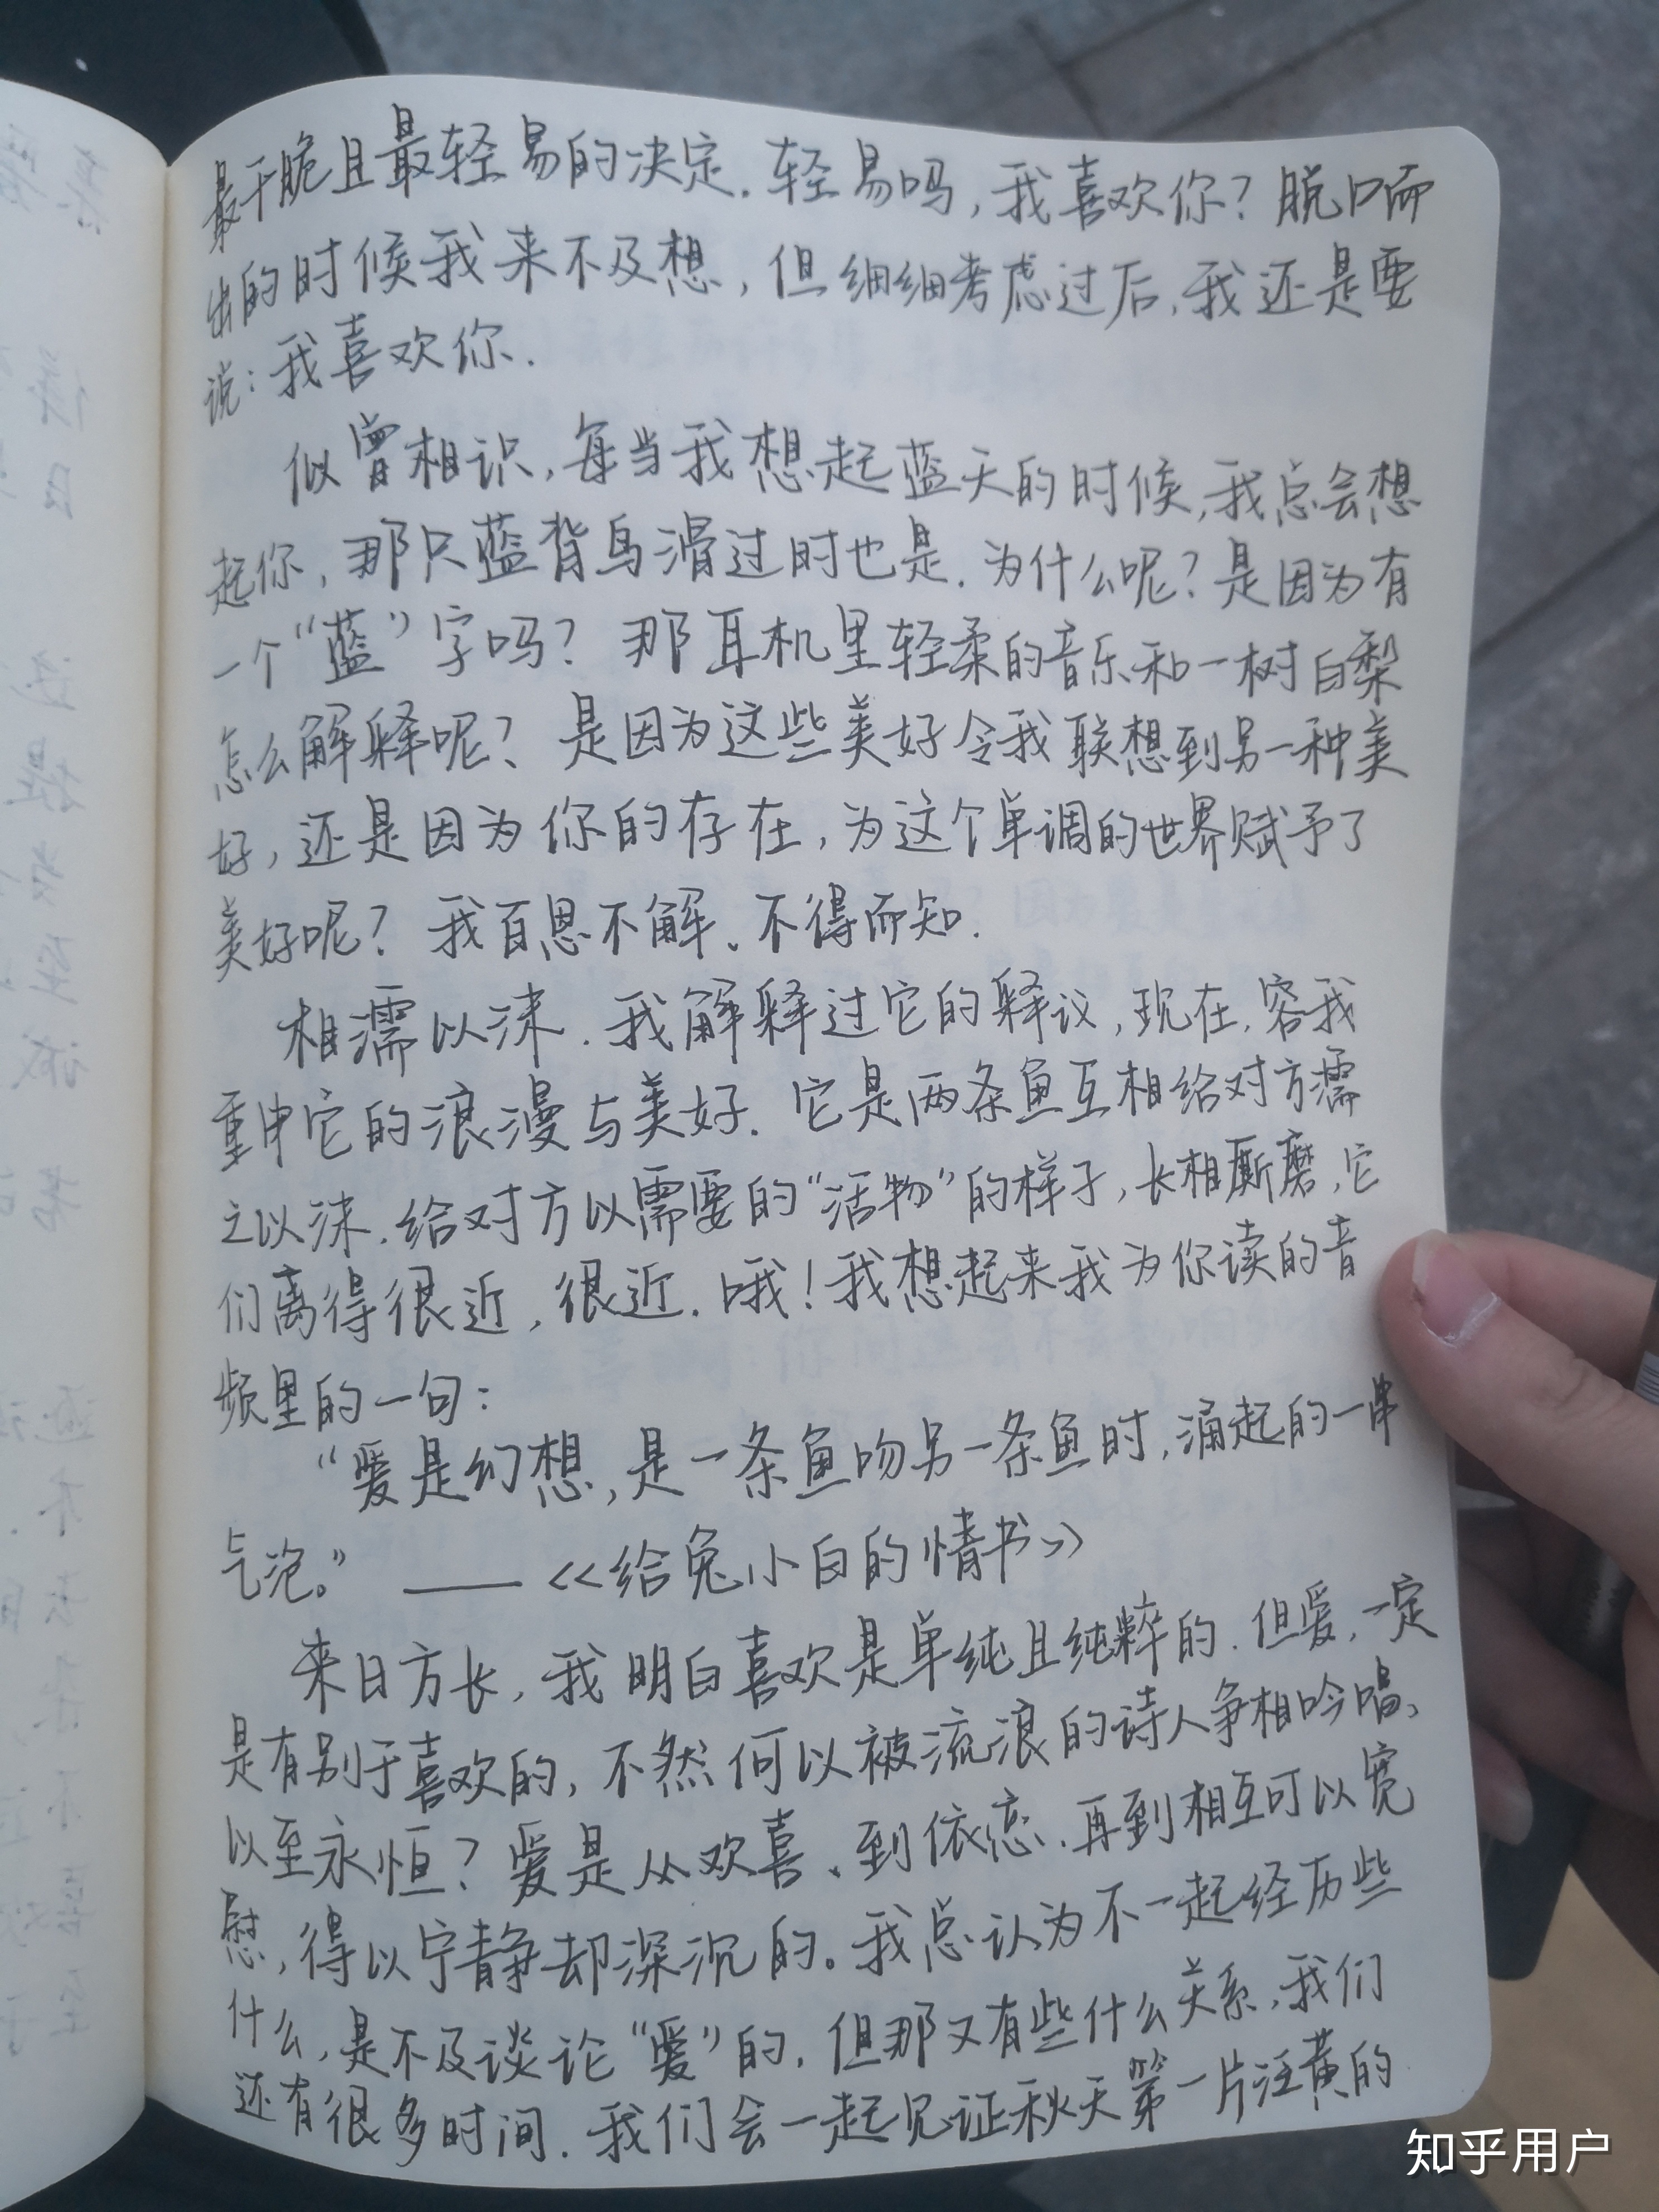 最干脆且最轻易的决定.轻易吗,我喜欢你?脱口而
出的时候我来不及想,但细细考虑过后,我还是要
说:我喜欢你.
似曾相识,每当我想起蓝天的时候,我总会想
起你,那只蓝背鸟滑过时也是.为什么呢?是因为有
一个“蓝”字吗?那耳机里轻柔的音乐和一树白梨
怎么解释呢?、是因为这些美好令我联想到另一种美
好,还是因为你的存在,为这个单调的世界赋予了
美好呢?我百思不解、不得而知.
相濡以沫.我解释过它的释议,现在,容我
重申它的浪漫与美好.它是两条鱼互相给对方濡
之以沫.给对方以需要的“活物”的样子,长相厮磨,它
们离得很近,很近.哦!我想起来我为你读的音
频里的一句:
“爱是幻想,是一条鱼吻另一条鱼时,涌起的一串
气泡。” ——《给兔小白的情书》
来日方长,我明白喜欢是单纯且纯粹的.但爱,一定
是有别于喜欢的,不然何以被流浪的诗人争相吟唱、
以至永恒?爱是从欢喜、到依恋、再到相互可以宽
慰,得以宁静却深沉的。我总认为不一起经历些
什么,是不及谈论“爱”的.但那又有些什么关系,我们
还有很多时间.我们会一起见证秋天第一片泛黄的
知乎用户